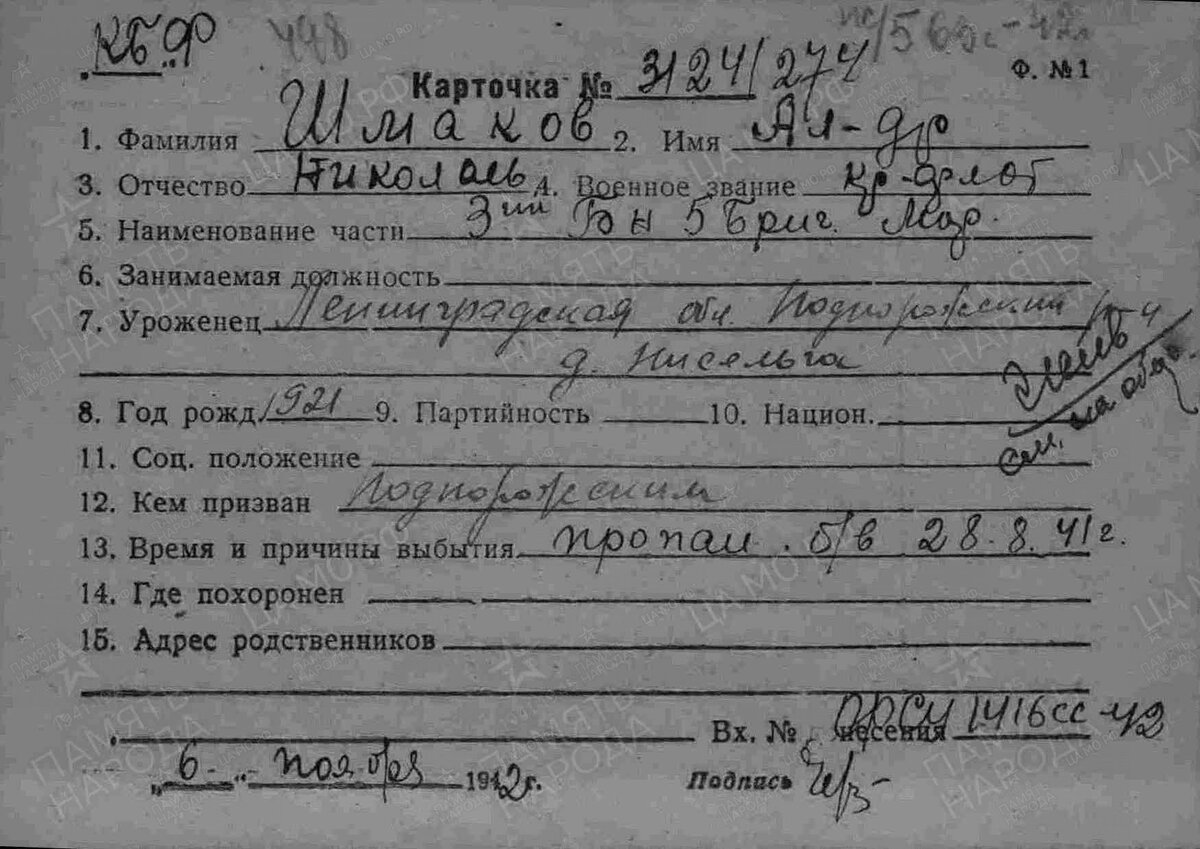 КБФ 448
Карточка № 3124/274 Ф. №1
1. Фамилия Шмаков 2. Имя Ал-др
3. Отчество Николаев 4. Военное звание кр-флот
5. Наименование части 3ий Бн 5 Бриг. Мор.
6. Занимаемая должность
7. Уроженец Ленинградская обл. Подпорожский р-н
д. Нисельга
8. Год рожд 1921 9. Партийность 10. Национ.
см. на обор.
11. Соц. положение
12. Кем призван Подпорожским
13. Время и причины выбытия пропал б/в 28.8.41 г.
14. Где похоронен
15. Адрес родственников
Вх. № несения 1416сс-42
„6“ ноября 1942 г. Подпись
ПАМЯТЬ НАРОДА
ЦА МО РФ